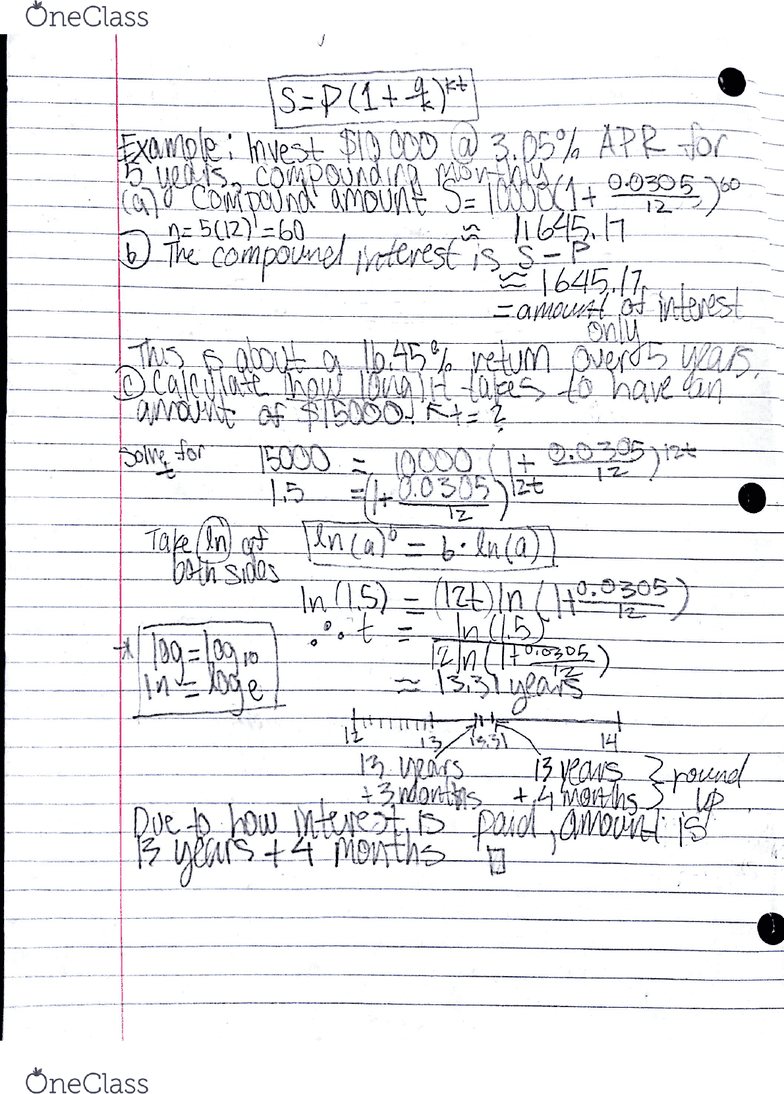 OneClass
S = P(1 + r/k)^kt
Example: Invest $10 000 @ 3.05% APR for
5 years, compounding monthly
(a) Compound amount S = 10000(1 + 0.0305/12)^60
n = 5(12) = 60 ≈ 11645.17
(b) The compound interest is S - P
≈ 1645.17
= amount of interest
only
This is about a 16.45% return over 5 years.
(c) Calculate how long it takes to have an
amount of $15000. t = ?
Solve for 15000 = 10000 (1 + 0.0305/12)^12t
t 1.5 = (1 + 0.0305/12)^12t
Take ln of ln(a)^b = b · ln(a)
both sides
ln(1.5) = (12t) ln (1 + 0.0305/12)
∴ t = ln(1.5) / 12 ln(1 + 0.0305/12)
* log = log10
ln = loge
≈ 13.31 years
12 13 13.31 14
13 years 13 years } round
+ 3 months + 4 months } up
Due to how interest is paid, amount is
13 years + 4 months □
OneClass